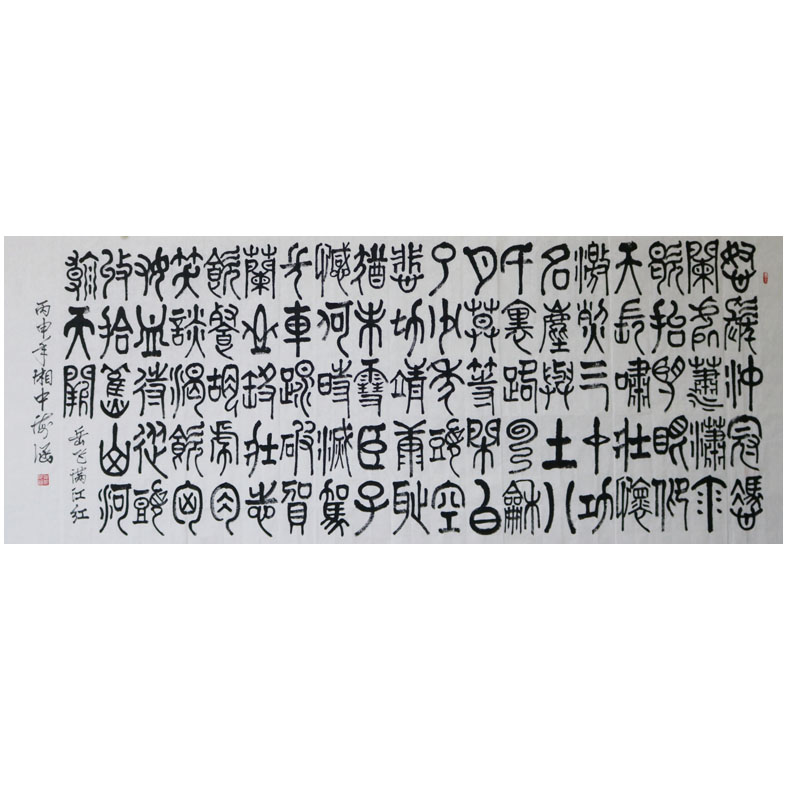 怒髮沖冠憑
闌處蕭瀟雨
歇抬望眼仰
天長嘯壯懷
激烈三十功
名塵與土八
千裏路雲和
月莫等閑白
了少年頭空
悲切靖康恥
猶未雪臣子
憾何時滅駕
長車踏破賀
蘭山缺壯志
飢餐胡虜肉
笑談渴飲匈
奴血待從頭
收拾舊山河
朝天闕
岳飞满江红
丙申年湘中